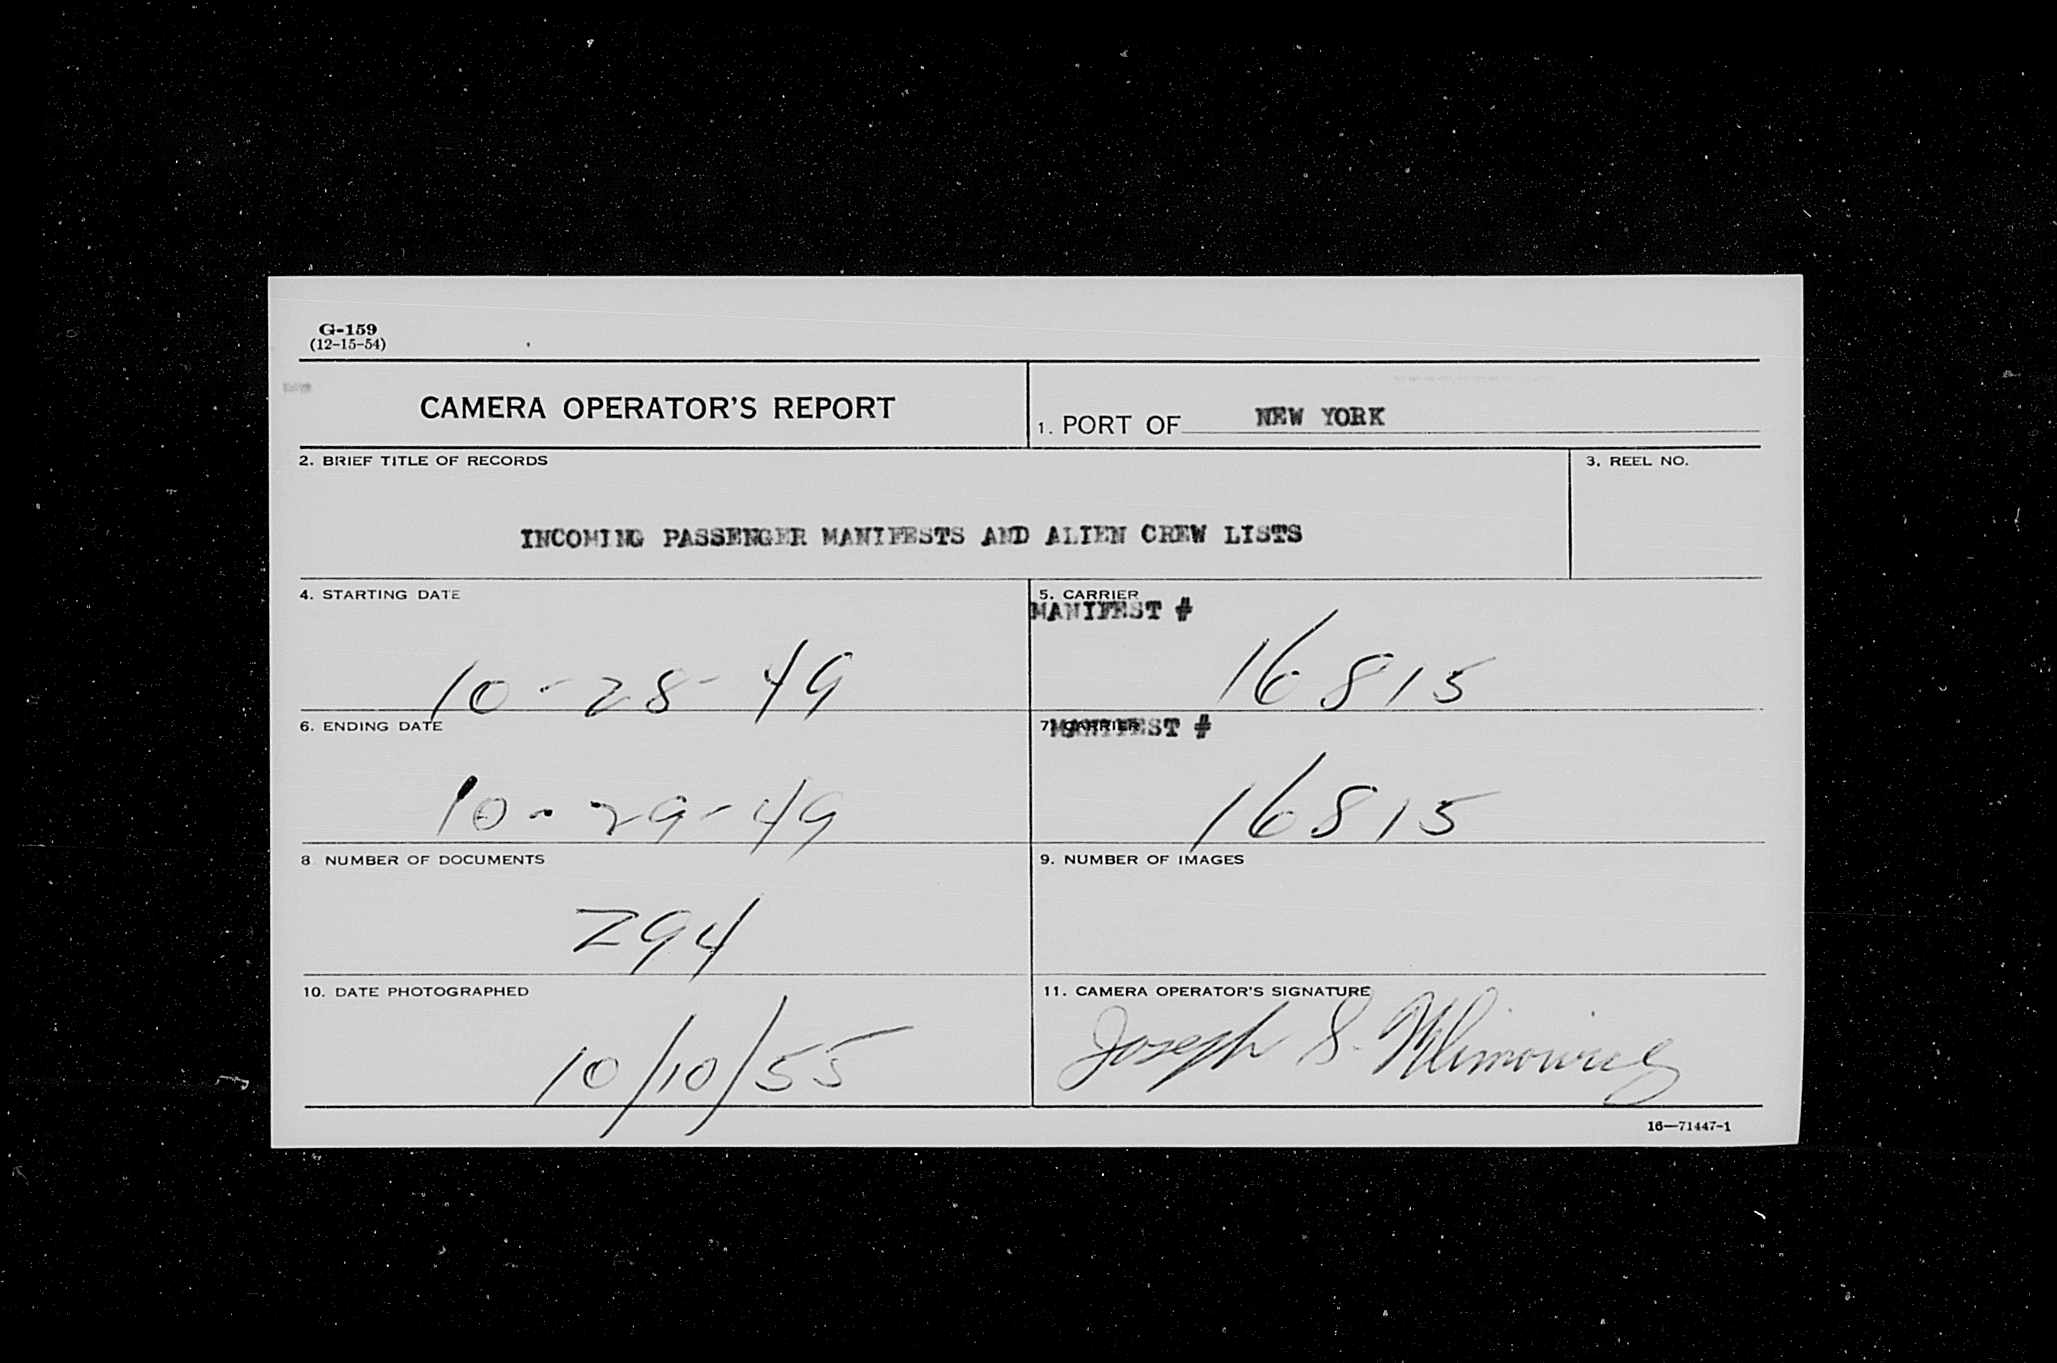 G-159
(12-15-54)
CAMERA OPERATOR'S REPORT
1. PORT OF NEW YORK
2. BRIEF TITLE OF RECORDS
3. REEL NO.
INCOMING PASSENGER MANIFESTS AND ALIEN CREW LISTS
4. STARTING DATE
5. CARRIER
MANIFEST #
10-28-49
16815
6. ENDING DATE
7. CARRIER
MANIFEST #
10-29-49
16815
8 NUMBER OF DOCUMENTS
9. NUMBER OF IMAGES
294
10. DATE PHOTOGRAPHED
11. CAMERA OPERATOR'S SIGNATURE
10/10/55
Joseph S.
16—71447-1